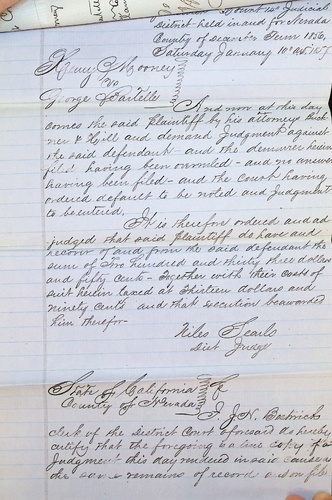 Court 14th Judicial
District held in and for Nevada
County of December Term 1856,
Saturday January 10th A.D. 1857
Henry C Mooney
vs
George Bartelle
And now at this day
comes the said Plaintiff by his attorneys Buck
ner & Hill and demand Judgment against
the said defendant - and the demurrer herein
filed having been overruled - and no answer
having been filed - and the Court having
ordered default to be noted and Judgment
to be entered,
It is therefore ordered and ad-
judged that said Plaintiff do have and
recover of and from the said defendant the
sum of Two hundred and thirty three dollars
and fifty cents - Together with their costs of
suit herein taxed at Thirteen dollars and
ninety cents and that execution be awarded
him therefor
Niles Searls
Dist Judge
State of California
County of Nevada
I, J. N.
clerk of the District Court aforesaid do hereby
certify that the foregoing a true copy of a
Judgment this day rendered in said cause as
the same remains of record and on file